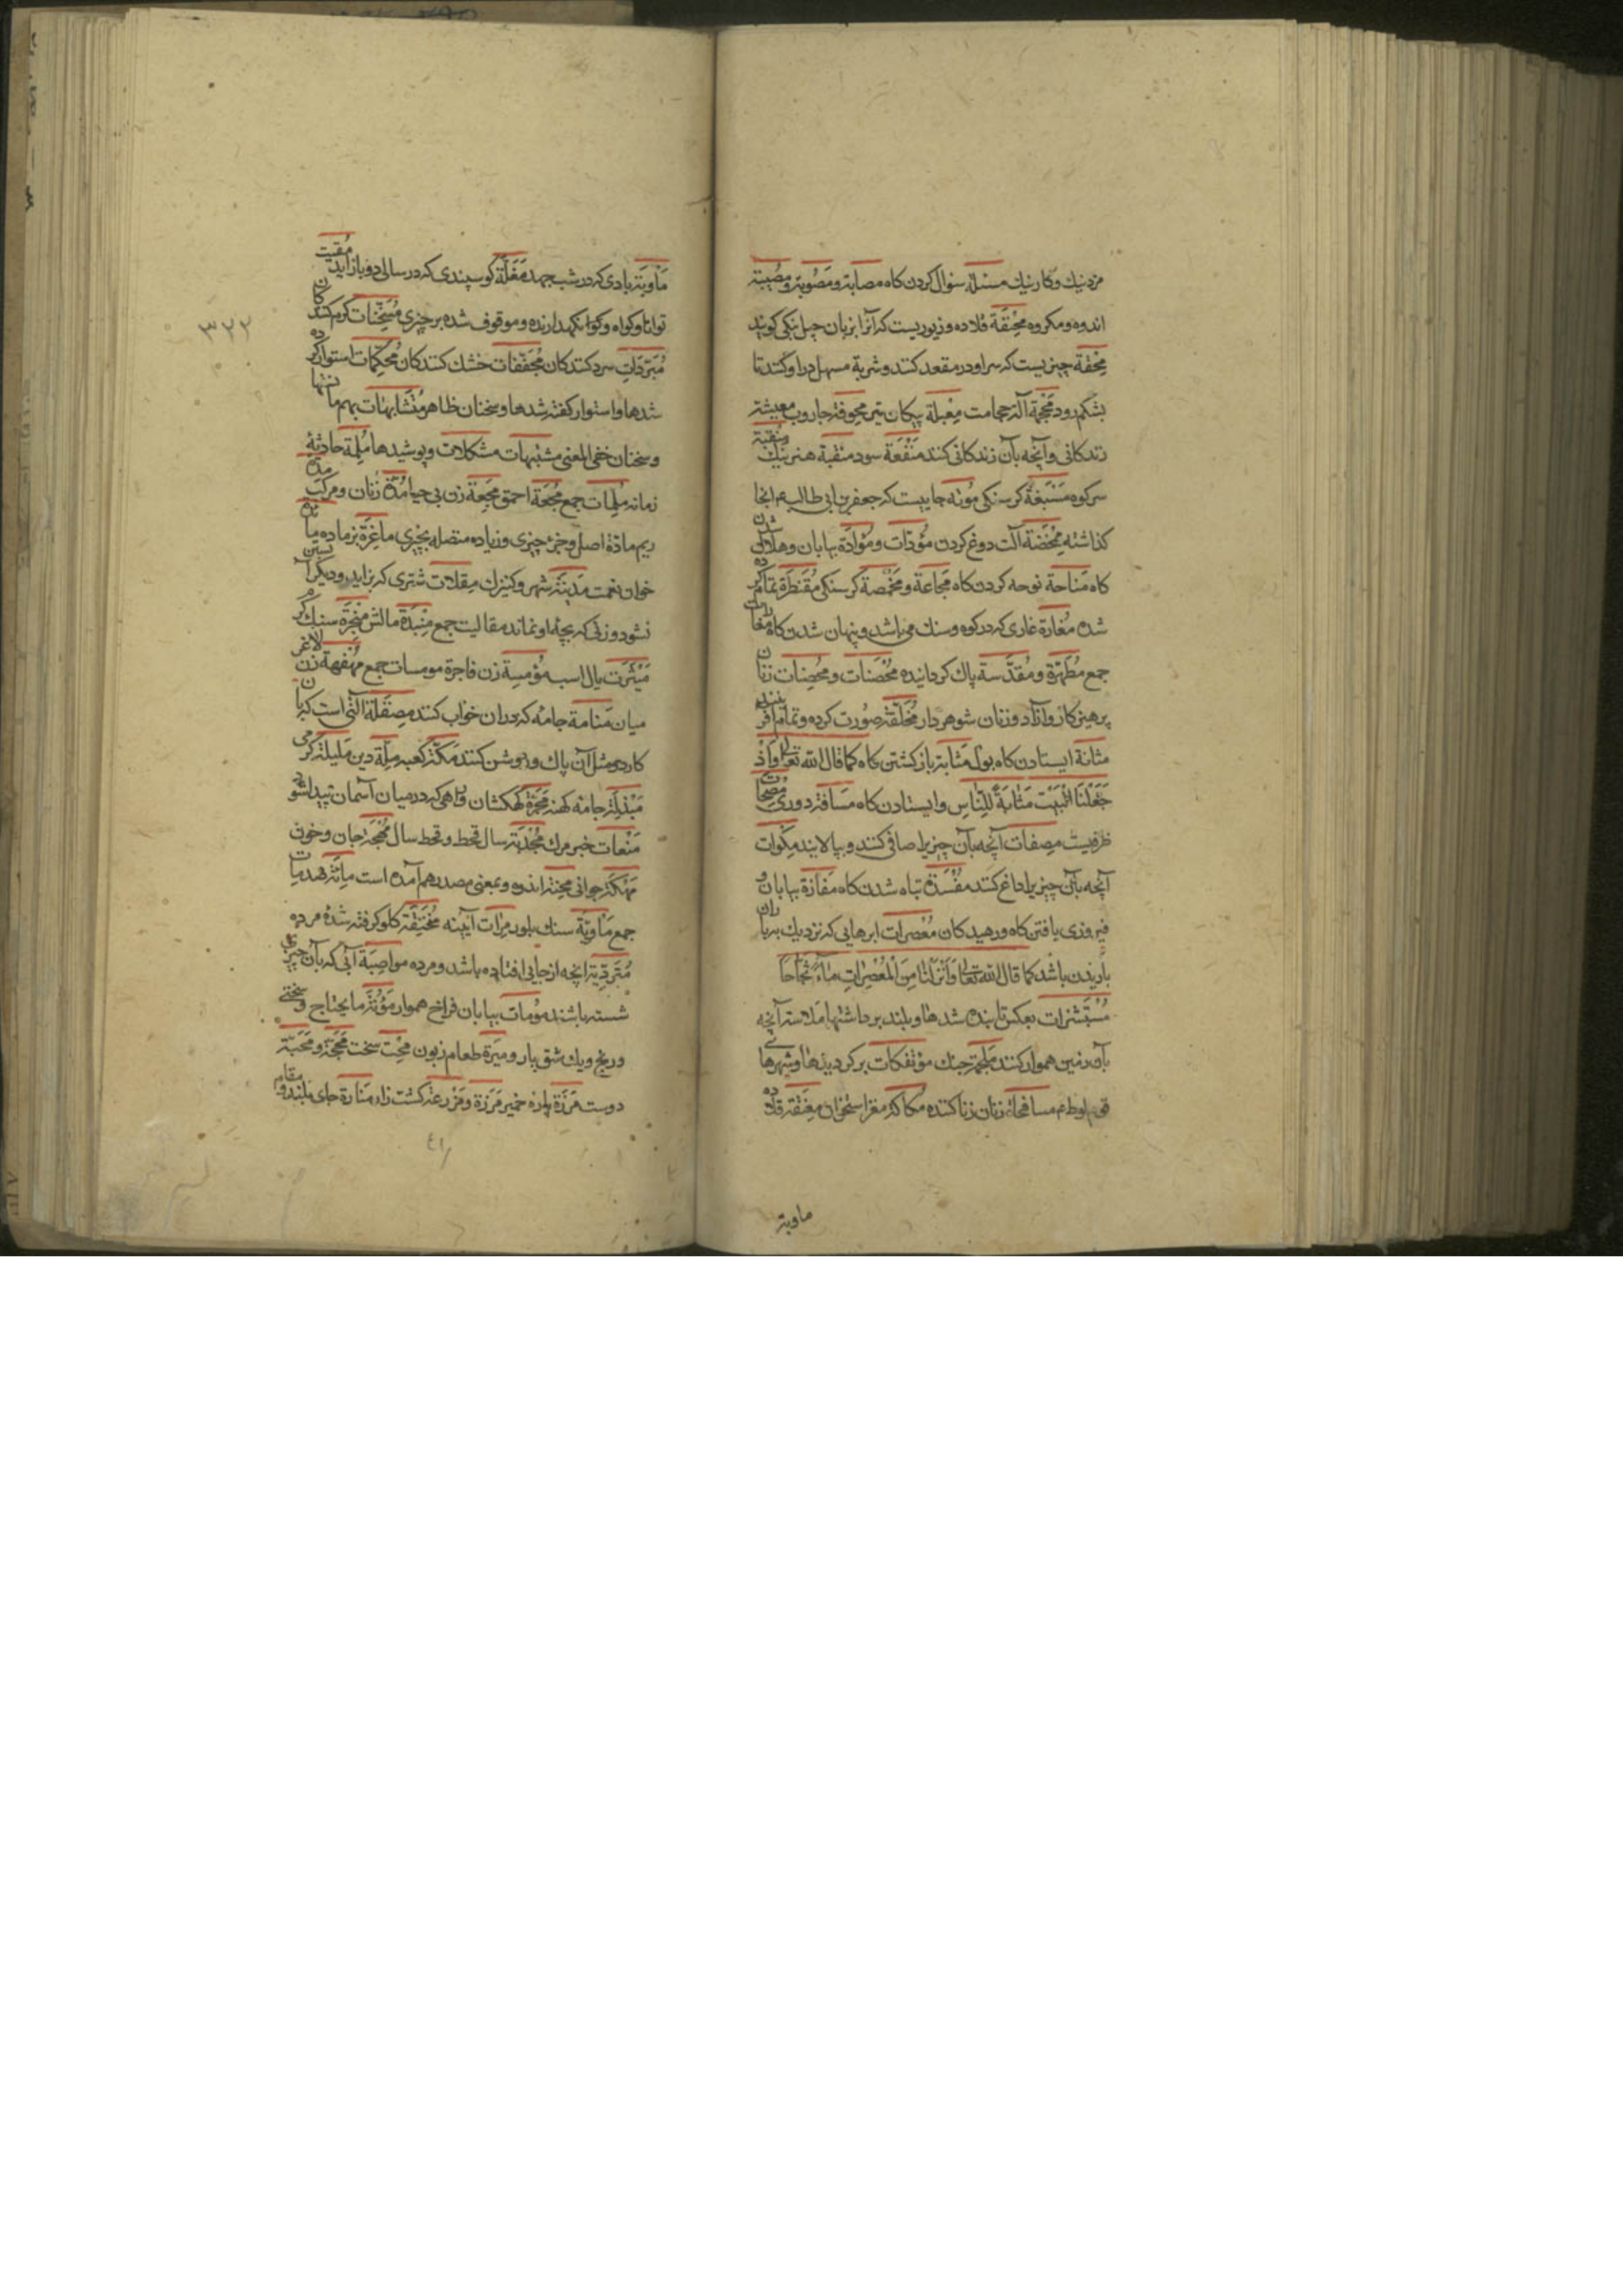 مزد نیك و كار نیك مسئلة سؤال كردن كاه مصابة و مَصُوبة و مُصیبة
اندوه و مكروه مِخْنَقَة قلاده و زیوریست كه آنرا بزبان چپل نكی كویند
مِحْقَنة چیزیست كه سر او در مقعد كنند و شربة مسهل در او كنند تا
بشكم رود مَحْجِمَة آلة حجامت مِعْبَلة پیكان تیر مِحْوَقة جاروب معیشة
زندكانی و آنچه بآن زندكانی كنند مَنْفَعَة سود منقبة هنر نیك مَنْقَبَة
سر كوه مَسْبَغَة كرسنكی مُوتَه جاییست كه جعفر بن ابی طالب ع انجا
كذاشته مِمْخَضَة آلت دوغ كردن مؤدّات و مُوادَة بیابان و هلاك شدن
كاه مَناحة نوحه كردن كاه مَجاعَة و مَخْمَصة كرسنكی مُقَنطَرة تمام كرده
شده مُغارَة غاری كه در كوه و سنك می باشد و پنهان شدن كاه مغارات
جمع مُطَهَّرة و مُقَدَّسة پاك كردانیده مُحْصَنات و مُحْصِنات زنان
پرهیزكار و آزاد و زنان شوهردار مُخَلَّقة صورت كرده و تمام آفریننده
مثانة ایستادن كاه بول مَثابة باز كشتن كاه كما قال الله تعالی وَاِذْ
جَعَلْنَا الْبَیْتَ مَثَابَةً لِلنَّاسِ و ایستادن كاه مَسَافة دوری مِصْحات
ظرفیست مِصفات آنچه بآن چیزیرا صافی كنند و بپالایند مِكْوات
آنچه بآن چیزیرا داغ كنند مَفْسَدة تباه شدن كاه مَفازَة بیابان و
فیروزی یافتن كاه و رهیدكان مُعْصِرات ابرهایی كه نزدیك بباران
باریدن باشد كما قال الله تعالی وَاَنْزَلْنَا مِنَ الْمُعْصِرَاتِ مَاءً ثَجَّاجًا
مُسْتَشْزرات بعكس تابنده شدها و بلند برداشتها مَلّاسة آنچه
بآن زمین هموار كنند مَلْحَمَة جنك مؤتفكات بر كردیدها و شهرهای
قوم لوط ع مسافحات زنان زنا كننده مكاكة مغز استخوان مِعْنَقة قلاده
ماوبة
مَأْوبَة بادی كه در شب جهد مَغَلّة كوسپندی كه در سالی دو بار زاید مُقیت
توانا و كواه و كوا و نكهدارنده و موقوف شده بر چیزی مُسَخِّنات كرم كنندكان
مُبَرِّدات سرد كنندكان مُجَفِّفات خشك كنندكان مُحْكَمات استوار كرده
شدها و استوار كفته شدها و سخنان ظاهر مُتَشابهات بهم مانندها
و سخنان خفی المعنی مشتبهات مشكلات و پوشیدها مُلِمّة حادثهٔ
زمانه مُلِمّات جمع مُجِعَة احمق مَجِعَة زن بی حیا مُدّة زمان و مركّب مِدّة
ریم مادّة اصل و جزء چیزی و زیاده متصله بچیزی ماعِزَة بز ماده مائدة
خوان نعمت مَدینة شهر و كنیزك مِقلات شتری كه بزاید و دیكر آبستن
نشود و زنی كه بچهٔ او نماند مقالیت جمع مِنْبَذَة بالش مِنْجَرَة سنك كرم
مَیْثَرَت یال اسب مُؤمِسة زن فاجرة مومسات جمع مُهَفهَفة زن لاغر
میان مَنامَة جامه كه در ان خواب كنند مِصقَلَة آلتی است كه بآن
كارد و مثل آن پاك و روشن كنند مَكّة كعبه مِلّة دین مَلیلة كرمی
مِبْذَلة جامهٔ كهنه مَجَرّة كهكشان و راهی كه در میان آسمان پیدا شود
مَنْعات خبر مرك مُجْدَبة سال قحط و قحط سال مُهْجَة جان و خون
مَهْكَة جوانی مِحْنَة اندوه و بمعنی مصدر هم آمده است مِائَة صد مئات
جمع مَاوِیّة سنك بلور مِرات آیینه مُخْتَنِقَة كلو كرفته شدهٔ مرده
مُتَرَدّیَة آنچه از جایی افتاده باشد و مرده مواصِبَة آبی كه بآن چیزی
شسته باشند مُومات بیابان فراخ هموار مَؤُنَة ما یحتاج و سختی
و رنج و یك شق بار و میرَة طعام زبون مجِت سخت مَحَجّة و مَحَبّة
دوست مَرَزَة پارهٔ خمیر مَرَزة و مَزرعة كشت زار مَنارَة جای بلند و مقام
٣٢٢
٤١